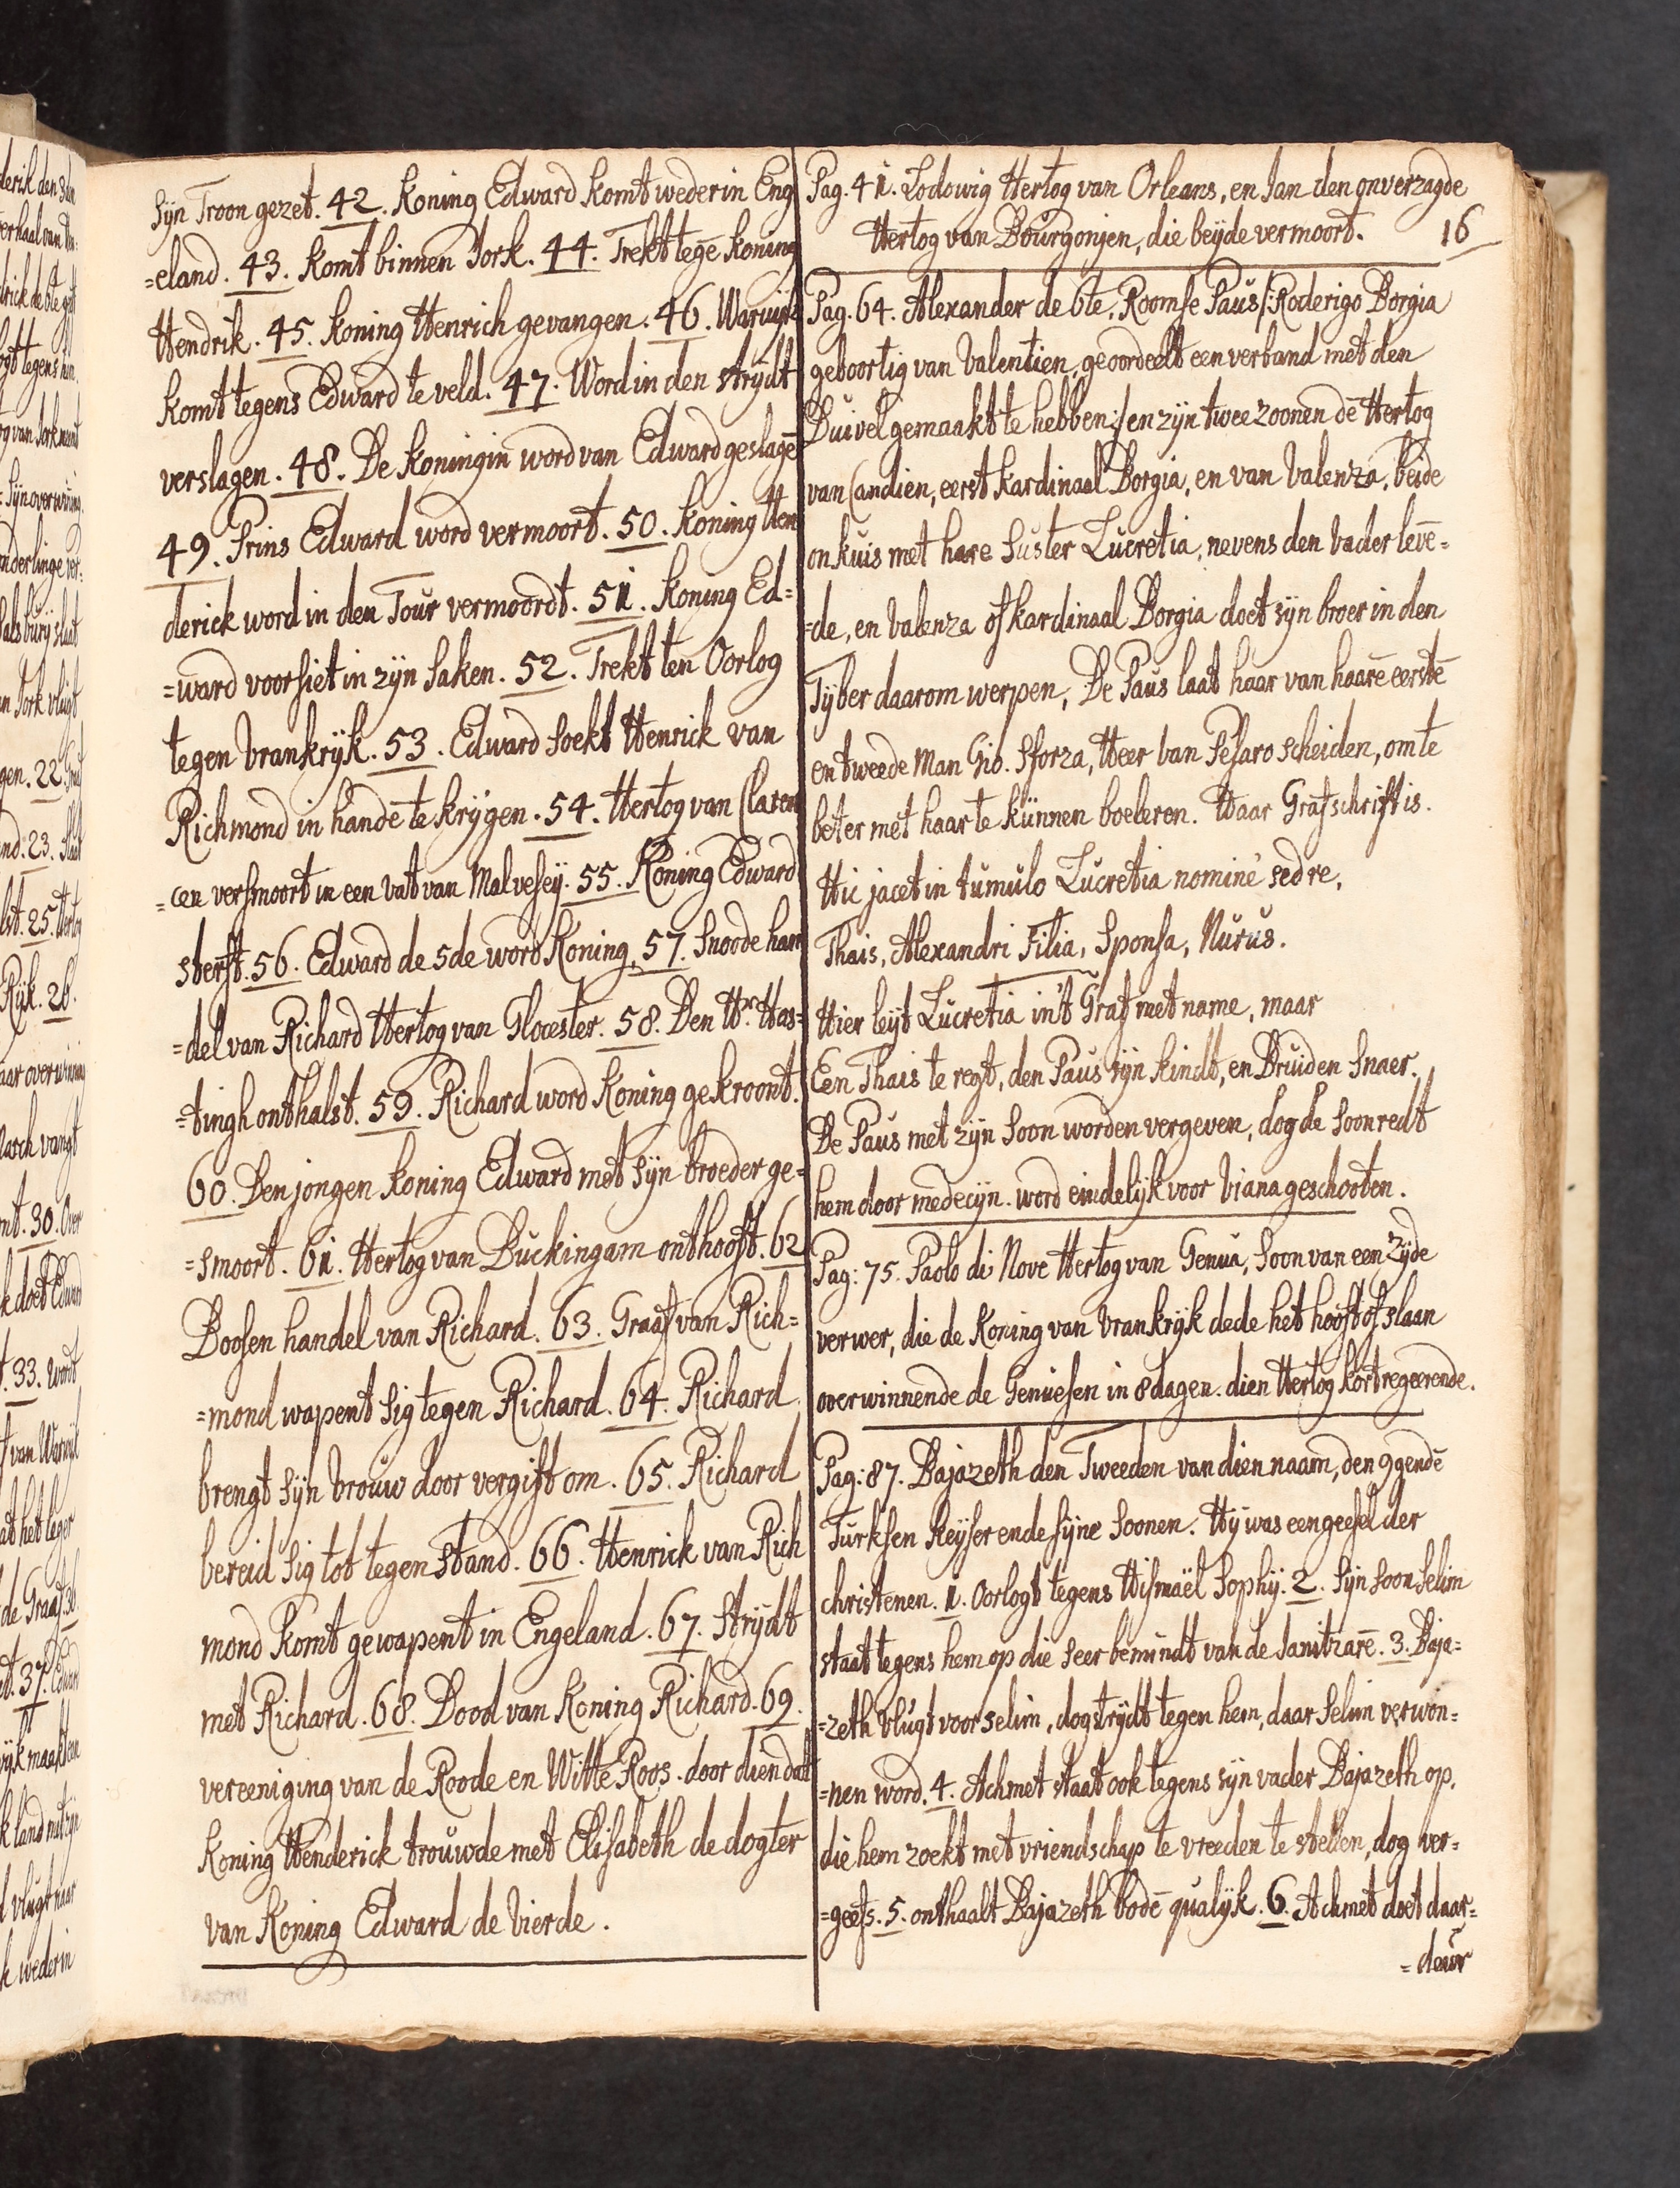 Sÿn Troon gezet. 42. Koning Edward komt weder in Eng
=eland. 43. komt binnen Jork. 44. Trekt tegē koning
Hendrik. 45. koning Henrich gevangen. 46. Warwijk
komt tegens Edward te veld. 47. Word in den strÿdt
verslagen. 48. De koningin word van Edward geslagē
49. Prins Edward word vermoort. 50. koning Hen
derick word in den Tour vermoordt. 51. koning Ed=
=ward voorsiet in zÿn saken. 52. Trekt ten Oorlog
tegen vrankrÿk. 53. Edward soekt Henrick van
Richmond in handē te krÿgen. 54. Hertog van Claren
=cen versmoort in een vat van Malvesey. 55. Koning Edward
sterft. 56. Edward de 5de word Koning, 57. Snoode han
=del van Richard Hertog van Glocester. 58. Den Hr. Has=
=tingh onthalst. 59. Richard word Koning gekroont.
60. Den jongen koning Edward met sÿn broeder ge=
=smoort. 61. Hertog van Buckingam onthooft. 62
Boosen handel van Richard. 63. Graaf van Rich=
=mond wapent sig tegen Richard. 64. Richard
brengt sÿn vrouw door vergift om. 65. Richard
bereid sig tot tegenstand. 66. Henrick van Rich
mond komt gewapent in Engeland. 67. strÿdt
met Richard. 68. Dood van Koning Richard. 69.
vereeniging van de Roode en Witte Roos. door dien dat
Koning Henderick trouwde met Elisabeth de dogter
van Koning Edward de vierde.
Pag. 41. Lodowig Hertog van Orleans, en Jan den onverzagde
Hertog van Bourgonjen, die beÿde vermoort.
16
Pag. 64. Alexander de 6te, Roomse Paus /: Roderigo Borgia
geboortig van Valentien, geoordeelt een verband met den
Duivel gemaakt te hebben :/ en zÿn twee zoonen dē Hertog
van Candien, eerst kardinaal Borgia, en van Valenza, beide
onkuis met hare Suster Lucretia, nevens den Vader levē=
=de, en Valenza of kardinaal Borgia doet sÿn broer in den
Tÿber daarom werpen, De Paus laat haar van haarē eerstē
en tweede Man Gio. Sforza, Heer van Pesaro scheiden, om te
beter met haar te kunnen boeleren. Haar Grafschrift is.
Hic jacet in tumulo Lucretia nomine sed re,
Thais, Alexandri Filia, Sponsa, Nurus.
Hier leÿt Lucretia in't Graf met name, maar
Een Thais te regt, den Paus sÿn kindt, en Bruid en Snaer.
De Paus met zÿn Soon worden vergeven, dog de Soon redt
hem door medecÿn. word eindelÿk voor Viana geschooten.
Pag: 75. Paolo di Nove Hertog van Genua, Soon van een Zÿde
verwer, die de Koning van Vrankrÿk dede het hooft of slaan
overwinnende de Genuesen in 8 dagen. dien Hertog kort regeerende.
Pag: 87. Bajazeth den Tweeden van dien naam, den 9gendē
Turksen Keÿser ende sÿne Soonen. Hÿ was een geesel der
christenen. 1. oorlogt tegens Hismaël Sophÿ. 2. Sÿn Soon Selim
staat tegens hem op die seer bemindt van de Janitzarē. 3. Baja=
=zeth vlugt voor Selim, dog strÿdt tegen hem, daar Selim verwon=
=nen word. 4. Achmet staat ook tegens sÿn vader Bajazeth op,
die hem zoekt met vriendschap te vreeden te stellen, dog ver=
=geefs. 5. onthaalt Bajazeth bodē qualÿk. 6. Achmet doet daar=
=deur